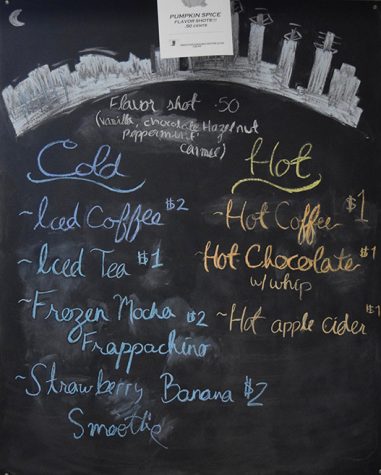 PUMPKIN SPICE
FLAVOR SHOTS!!
.50 CENTS
Flavor shot .50
(vanilla, chocolate Hazelnut
peppermint,
carmel)
Cold
Hot
~Iced Coffee $2
~Iced Tea $1
~Frozen Mocha $2
Frappachino
~Strawberry Banana $2
Smoothie
~Hot Coffee $1
Hot Chocolate $1
w/whip
~Hot apple cider $1